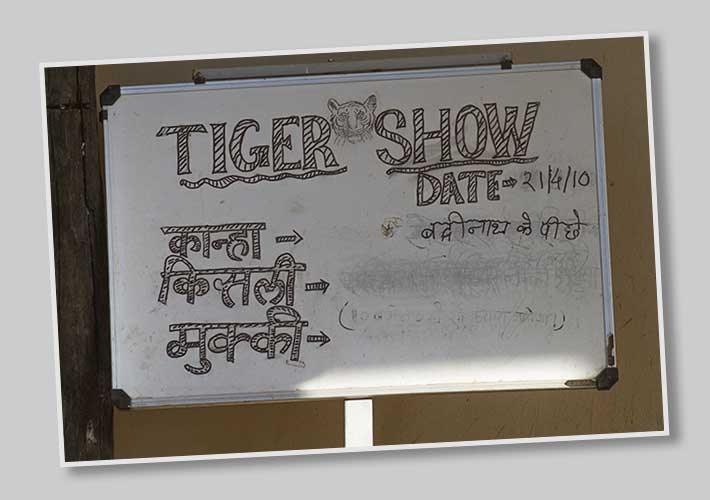 TIGER SHOW
DATE → २1/4/10
कान्हा → बद्रीनाथ के पीछे
किसली →
मुक्की →